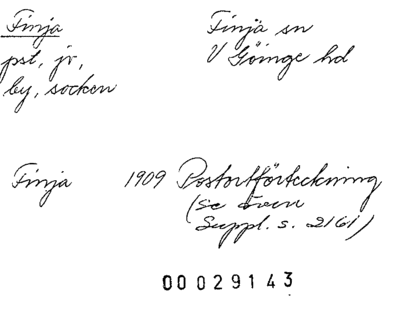 Finja
pst, jv,
by, socken
Finja sn
V Göinge hd
Finja 1909 Postortförteckning
(se även
Suppl. s. 2161)
00029143